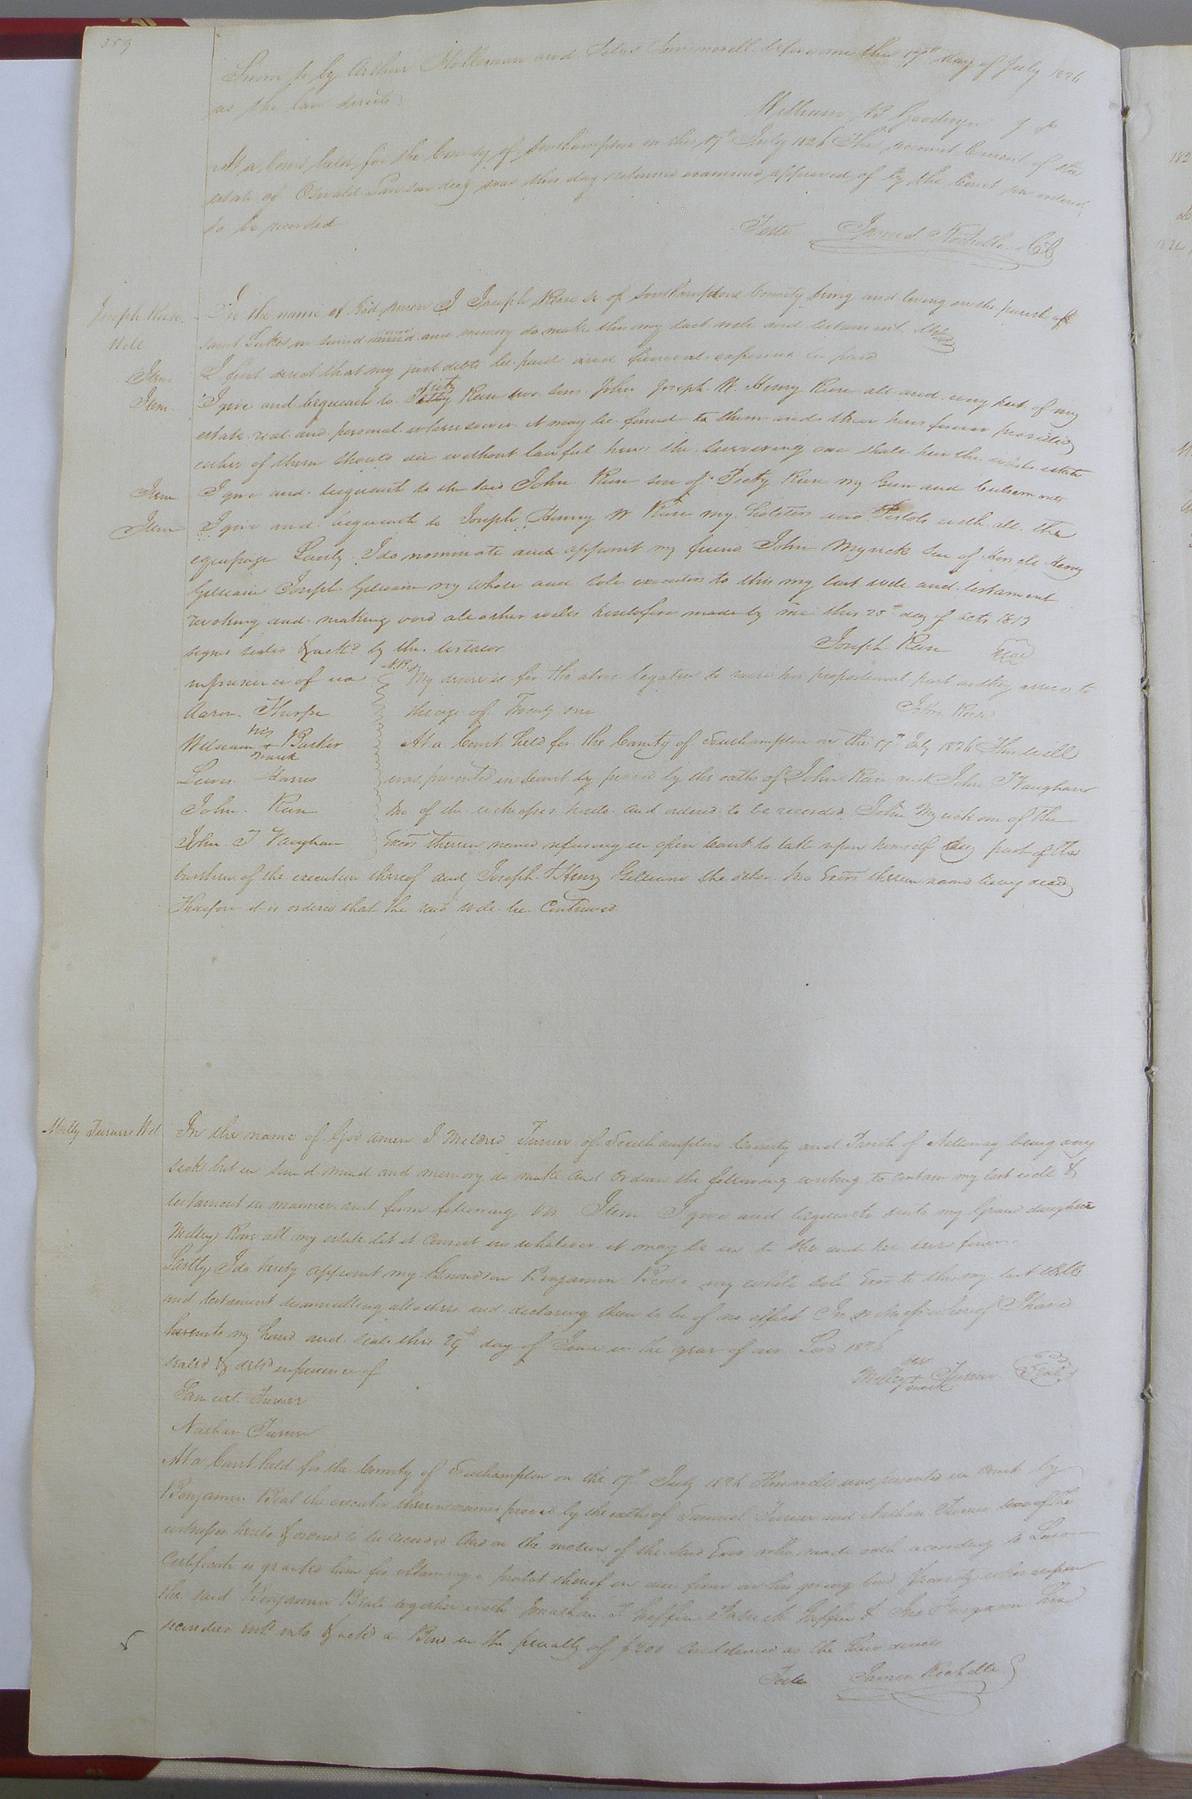 359
Sworn to by Arthur Holleman and Silas Summerell before me this 17th day of July 1826
as the law directs
William B Goodwyn J P
At a Court held for the County of Southampton on the 17th July 1826 This account Current of the
estate of Oswald Lawson decd was this day returned examined approved of by the Court & ordered
to be recorded
Teste James Rochelle C C
Joseph Ruse
Will
In the name of God Amen I Joseph Ruse Sr of Southampton County being and living in the parish of
Saint Lukes in sound mind and memory do make this my last will and testament
Item
I first direct that my just debts be paid and funeral expenses be paid
Item
I give and bequeath to Patty Ruse two sons John Joseph W. Henry Ruse all and every part of my
estate real and personal wheresoever it may be found to them and their heirs forever provided
either of them should die without lawful heir the surviving one shall heir the whole estate
Item
I give and bequeath to the said John Ruse son of Patty Ruse my Gun and
Item
I give and bequeath to Joseph Henry W Ruse my holsters and Pistols with all the
equipage Lastly I do nominate and appoint my friend John Myrick son of Henry
Gilliam Joseph Gilliam my whole and sole executors to this my last will and testament
revoking and making void all other wills heretofore made by me this 25th day of Octr 1813
signd seald & ackd by the testator
Joseph Ruse Seal
in presence of us
NB My desire is for the above legatees to receive his proportional part as they arrive to
Aaron Thorpe
the age of Twenty one
William his + mark Barker
At a Court held for the County of Southampton on the 17th July 1826 This will
Lewis Harris
was presented in Court & proved by the oaths of John Ruse and John T Vaughan
John Ruse
two of the witnesses hereto and ordered to be recorded John Myrick one of the
John T Vaughan
Exors therein named refusing in open Court to take upon himself any part of the
burthen of the execution thereof and Joseph & Henry Gilliam the other two Exors therein named being dead
Therefore it is ordered that the said will be Continued
Milly Turners Will
In the name of God amen I Mildred Turner of Southampton County and Parish of Nottoway being
sick but in sound mind and memory do make and ordain the following writing to contain my last will &
testament in manner and form following Viz Item I give and bequeath unto my Grand daughter
Milley all my estate let it consist in whatever it may be in to her and her heirs forever
Lastly I do hereby appoint my Grandson Benjamin Beal my whole Sole Exor to this my last Will
and testament disannulling all others and declaring them to be of no effect In witness whereof I have
hereunto my hand and seal this 29th day of June in the year of our Lord 1825
seald & deld in presence of
Milley her + mark Turner Seal
Samuel Turner
Nathan Turner
At a Court held for the County of Southampton on the 17th July 1826 This will was presented in Court by
Benjamin Beal the executor therein named proved by the oaths of Samuel Turner and Nathan Turner two of the
witnesses hereto & ordered to be recorded And on the motion of the said Exor who made oath according to Law
Certificate is granted him for obtaining a probat thereof in due form on his giving bond & security whereupon
the said Benjamin Beal together with Jonathan T Griffin &
seconded into & ackd a Bond in the penalty of $200 Conditioned as the law directs
Teste James Rochelle